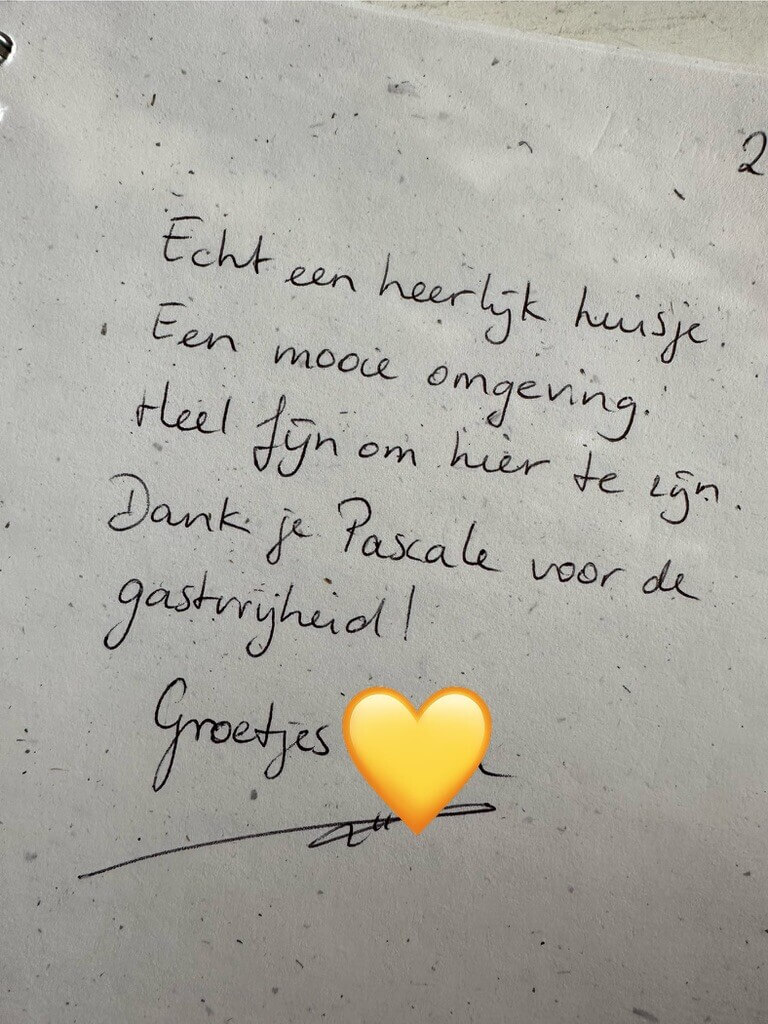 2
Echt een heerlijk huisje.
Een mooie omgeving.
Heel fijn om hier te zijn.
Dank je Pascale voor de
gastvrijheid!
Groetjes